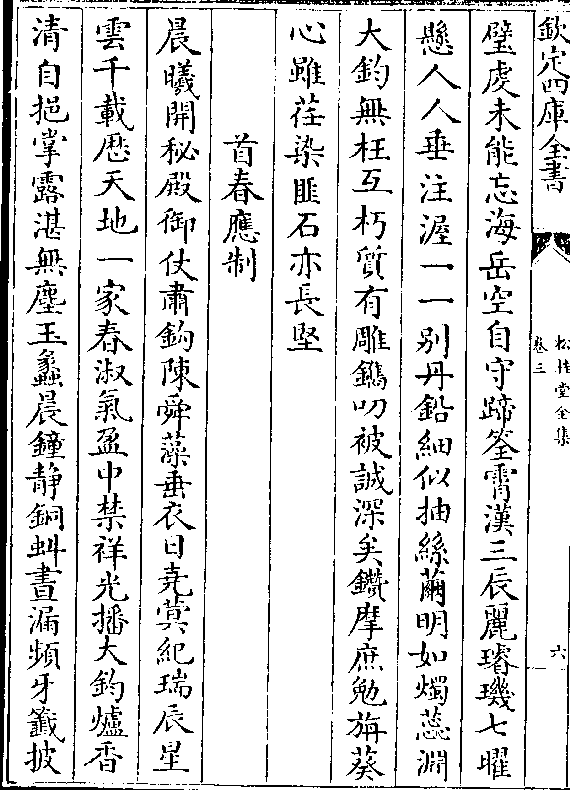 欽定四庫全書
松桂堂全集
卷三
六
璧虔未能忘海岳空自守蹄筌霄漢三辰麗璿璣七曜
懸人人垂注渥一一别丹鉛細似抽絲繭明如燭蕊淵
大鈞無枉互朽質有雕鐫叨被誠深矣鑽摩庶勉旃葵
心雖荏染匪石亦長堅
首春應制
晨曦開秘殿御仗肅鈎陳舜藻垂衣日堯蓂紀瑞辰星
雲千載歴天地一家春淑氣盈中禁祥光播大鈞爐香
清自挹掌露湛無塵玉蠡晨鐘静銅虬晝漏頻牙籤披